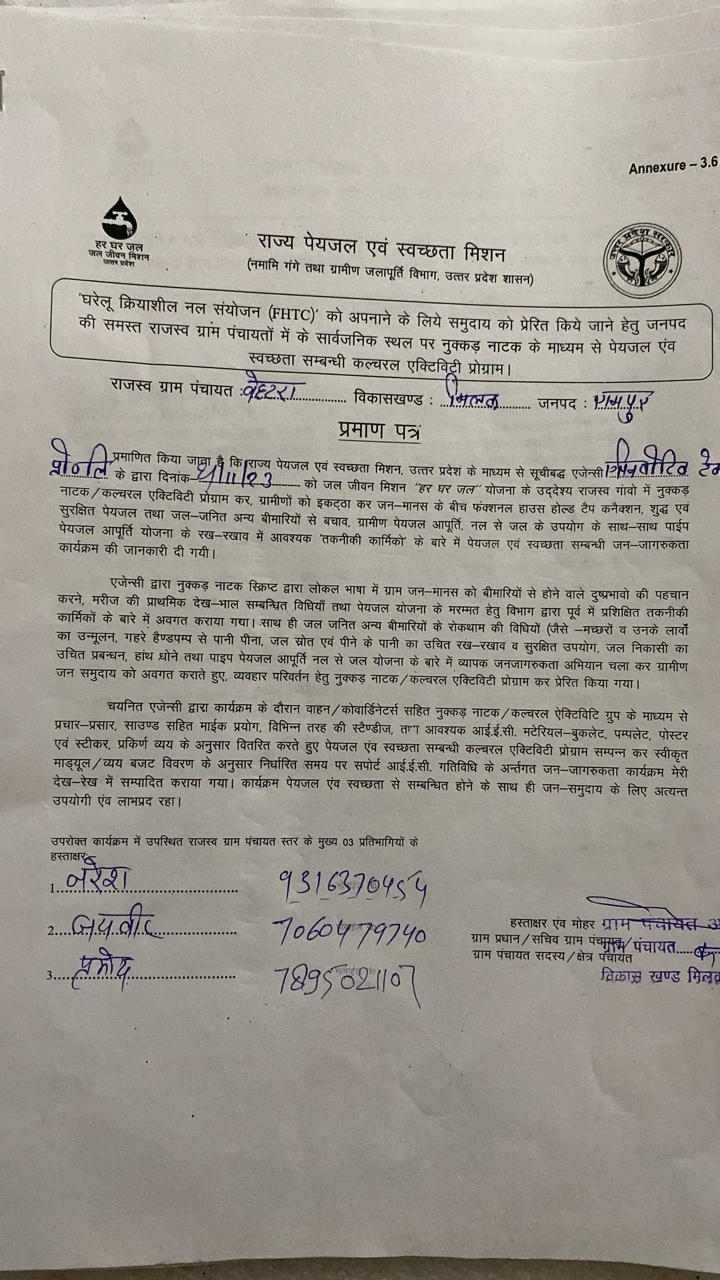 Annexure – 3.6
हर घर जल
जल जीवन मिशन
उत्तर प्रदेश
राज्य पेयजल एवं स्वच्छता मिशन
(नमामि गंगे तथा ग्रामीण जलापूर्ति विभाग, उत्तर प्रदेश शासन)
उत्तर प्रदेश सरकार
'घरेलू क्रियाशील नल संयोजन (FHTC)' को अपनाने के लिये समुदाय को प्रेरित किये जाने हेतु जनपद
की समस्त राजस्व ग्राम पंचायतों में के सार्वजनिक स्थल पर नुक्कड़ नाटक के माध्यम से पेयजल एंव
स्वच्छता सम्बन्धी कल्चरल एक्टिविटी प्रोग्राम।
राजस्व ग्राम पंचायत : विकासखण्ड : मिलक जनपद : रामपुर
प्रमाण पत्र
प्रमाणित किया जाता है कि राज्य पेयजल एवं स्वच्छता मिशन, उत्तर प्रदेश के माध्यम से सूचीबद्ध एजेन्सी
के द्वारा दिनांक /11/23 को जल जीवन मिशन "हर घर जल" योजना के उद्देश्य राजस्व गांवो में नुक्कड़
नाटक/कल्चरल एक्टिविटी प्रोग्राम कर, ग्रामीणों को इकट्ठा कर जन-मानस के बीच फंक्शनल हाउस होल्ड टैप कनैक्शन, शुद्ध एवं
सुरक्षित पेयजल तथा जल-जनित अन्य बीमारियों से बचाव, ग्रामीण पेयजल आपूर्ति, नल से जल के उपयोग के साथ-साथ पाईप
पेयजल आपूर्ति योजना के रख-रखाव में आवश्यक 'तकनीकी कार्मिको' के बारे में पेयजल एवं स्वच्छता सम्बन्धी जन-जागरुकता
कार्यक्रम की जानकारी दी गयी।
एजेन्सी द्वारा नुक्कड़ नाटक स्क्रिप्ट द्वारा लोकल भाषा में ग्राम जन-मानस को बीमारियों से होने वाले दुष्प्रभावो की पहचान
करने, मरीज की प्राथमिक देख-भाल सम्बन्धित विधियाँ तथा पेयजल योजना के मरम्मत हेतु विभाग द्वारा पूर्व में प्रशिक्षित तकनीकी
कार्मिकों के बारे में अवगत कराया गया। साथ ही जल जनित अन्य बीमारीयों के रोकथाम की विधियों (जैसे –मच्छरों व उनके लार्वो
का उन्मूलन, गहरे हैण्डपम्प से पानी पीना, जल स्रोत एवं पीने के पानी का उचित रख-रखाव व सुरक्षित उपयोग, जल निकासी का
उचित प्रबन्धन, हांथ धोने तथा पाइप पेयजल आपूर्ति नल से जल योजना के बारे में व्यापक जनजागरुकता अभियान चला कर ग्रामीण
जन समुदाय को अवगत कराते हुए, व्यवहार परिवर्तन हेतु नुक्कड़ नाटक/कल्चरल एक्टिविटी प्रोग्राम कर प्रेरित किया गया।
चयनित एजेन्सी द्वारा कार्यक्रम के दौरान वाहन/कोवार्डिनेटर्स सहित नुक्कड़ नाटक/कल्चरल ऐक्टिविटि ग्रुप के माध्यम से
प्रचार-प्रसार, साउण्ड सहित माईक प्रयोग, विभिन्न तरह की स्टैण्डीज, आवश्यक आई.ई.सी. मटेरियल-बुकलेट, पम्पलेट, पोस्टर
एवं स्टीकर, प्रकिर्ण व्यय के अनुसार वितरित करते हुए पेयजल एंव स्वच्छता सम्बन्धी कल्चरल एक्टिविटी प्रोग्राम सम्पन्न कर स्वीकृत
माड्यूल/व्यय बजट विवरण के अनुसार निर्धारित समय पर सपोर्ट आई.ई.सी. गतिविधि के अर्न्तगत जन-जागरुकता कार्यक्रम मेरी
देख-रेख में सम्पादित कराया गया। कार्यक्रम पेयजल एंव स्वच्छता से सम्बन्धित होने के साथ ही जन-समुदाय के लिए अत्यन्त
उपयोगी एंव लाभप्रद रहा।
उपरोक्त कार्यक्रम में उपस्थित राजस्व ग्राम पंचायत स्तर के मुख्य 03 प्रतिभागियों के
हस्ताक्षर
1. नरेश 9316370454
2. जयवीर 7060479740
3. प्रमोद 7895021107
हस्ताक्षर एंव मोहर ग्राम पंचायत
ग्राम प्रधान/सचिव ग्राम पंचायत/ ग्राम पंचायत
ग्राम पंचायत सदस्य/क्षेत्र पंचायत
विकास खण्ड मिलक